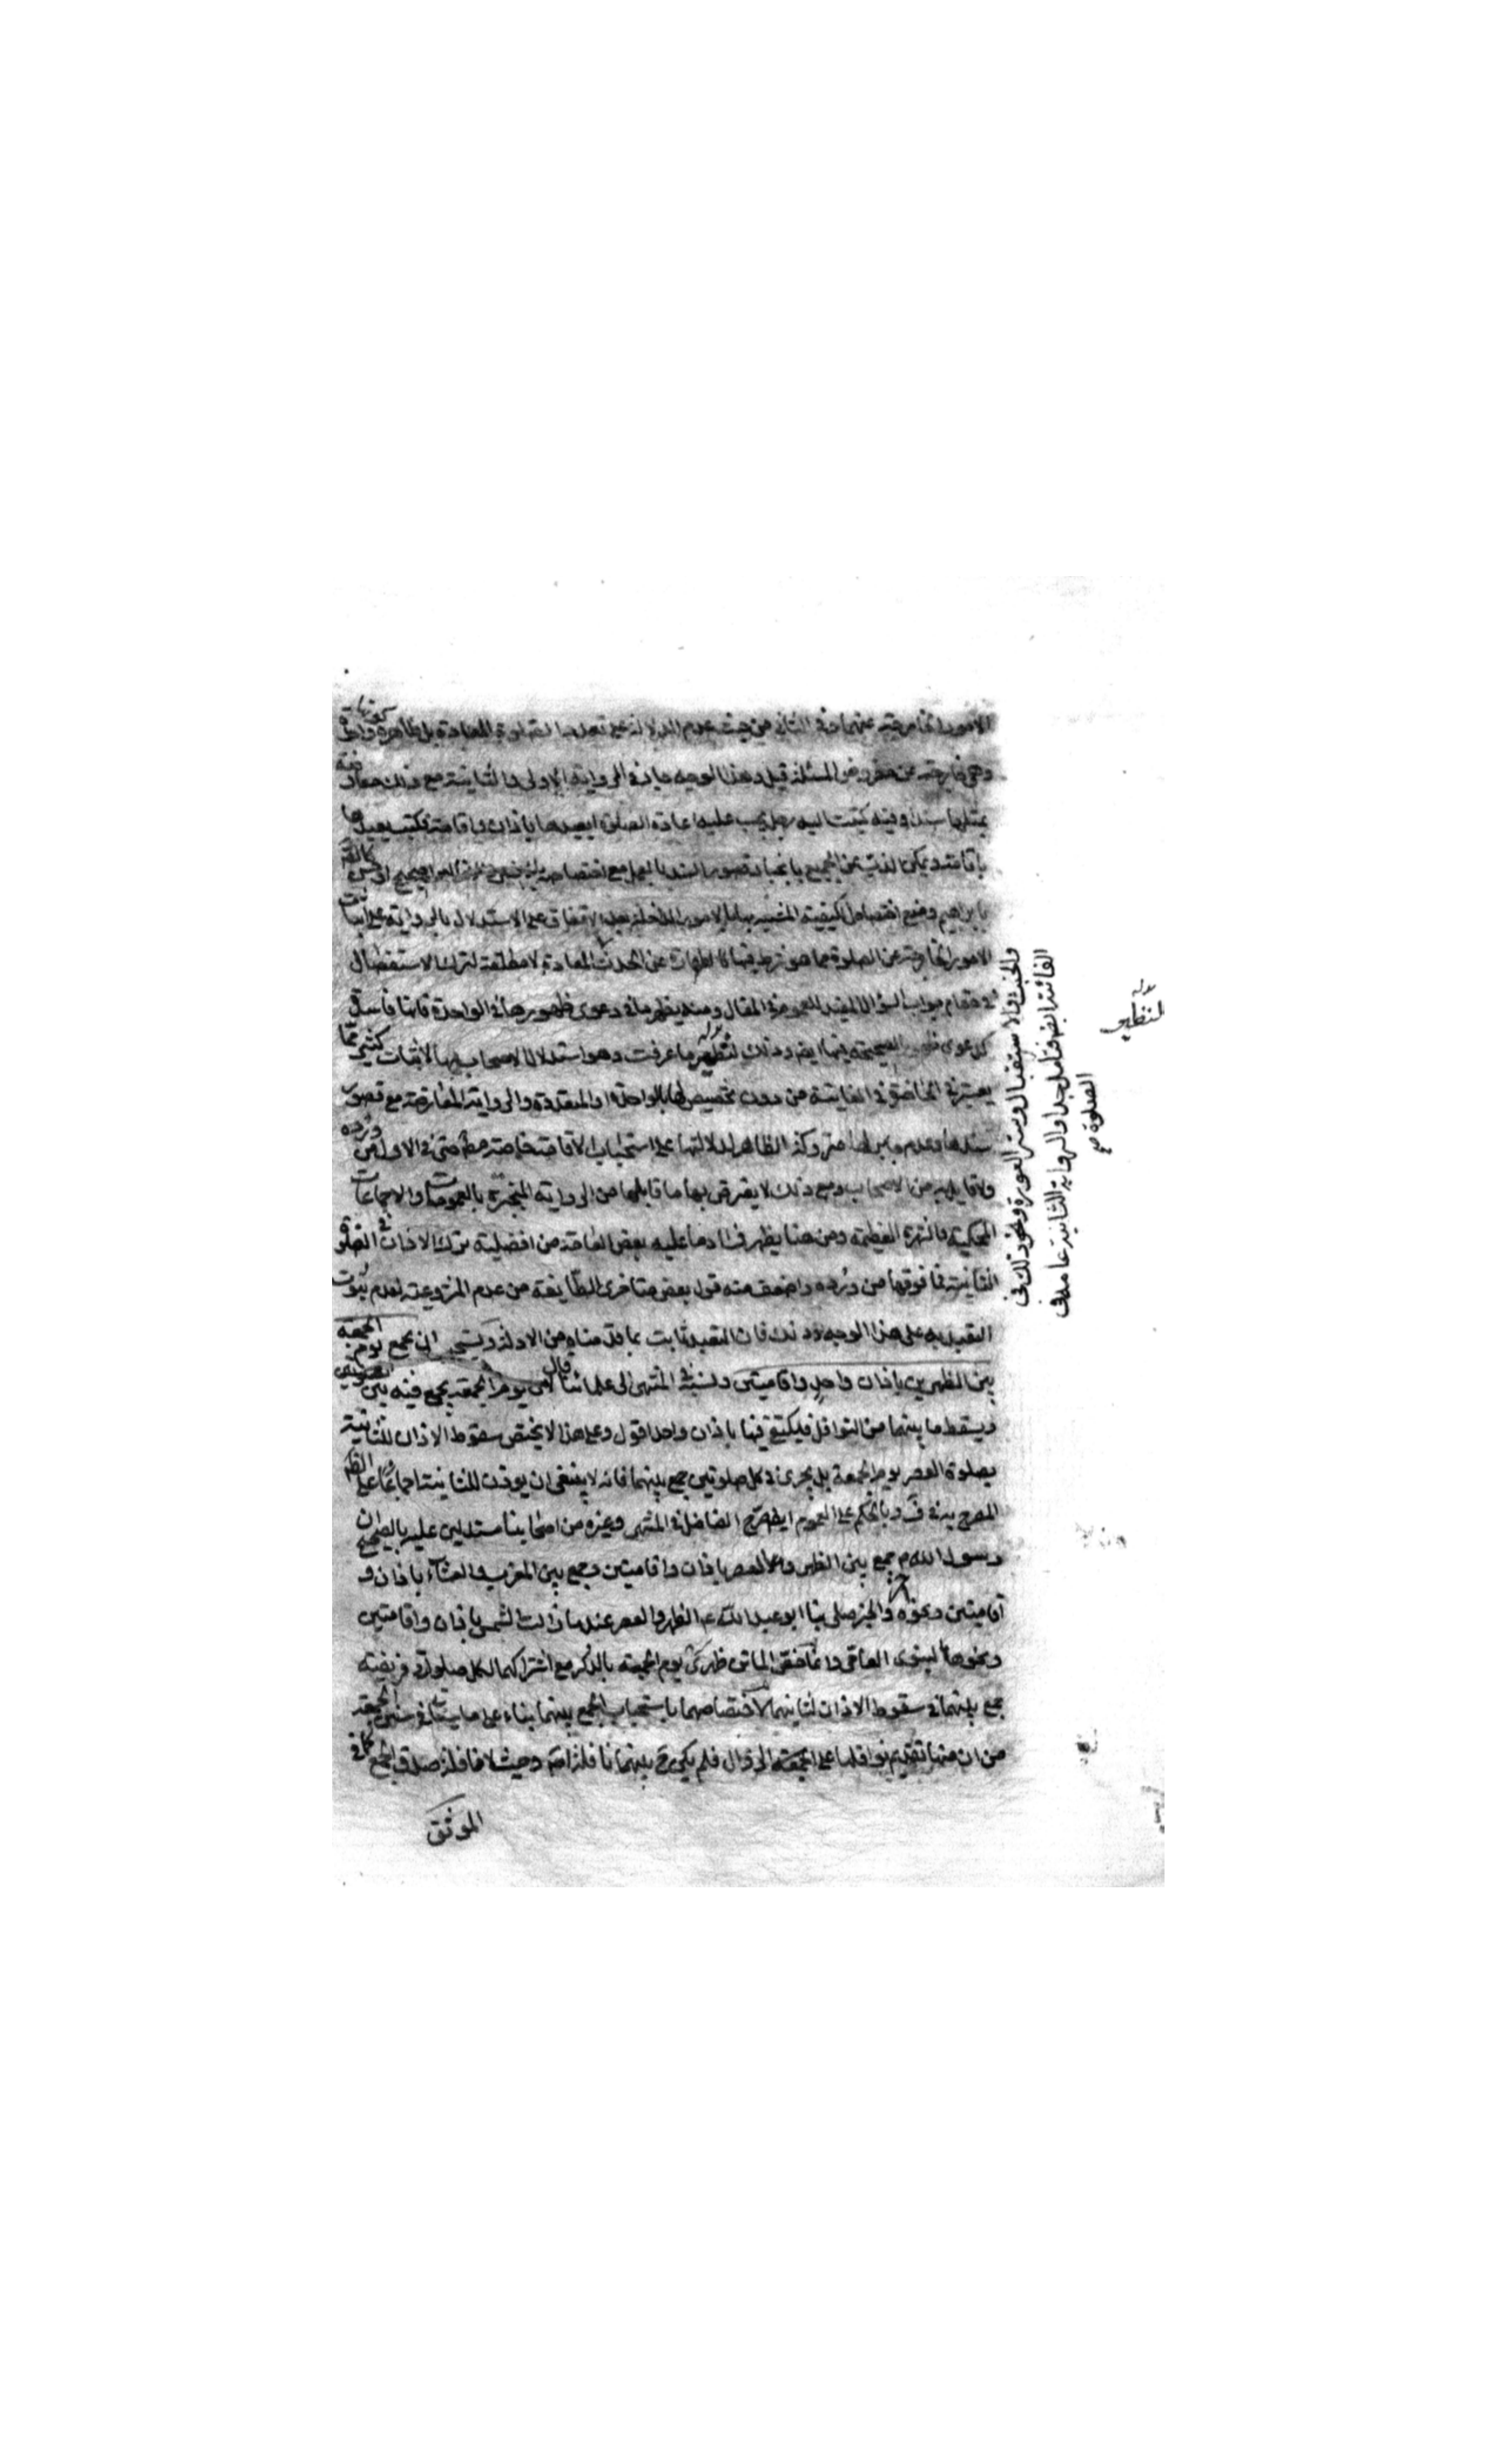 الامور الخارجة عنهما وفى الثانى من حيث عدم الدلالة على تعدد الصلوة المعادة بل ظاهره كونها واحدة
وهى خارجة عن مفروض المسئلة قيل وهذا الوجه جار فى الرواية الاولى والثانية مع ذلك معارضة
بمثلها سندا وفيه كتبت اليه رجل يجب عليه اعادة الصلوة ايعيدها باذان واقامة فكتب يعيدها
باقامة ويمكن الذب عن الجميع بانجبار قصور السند بالعمل مع اختصاصه
بابراهيم ومنع اختصاص الكيفية المشبه بها بالامور الداخلة بعد الاتفاق على الاستدلال بالرواية على اثبات
الامور الخارجة عن الصلوة مما هو شرط فيها كالطهارة عن الحدث المعادة لا مطلقة لترك الاستفصال
فى مقام جواب السؤال المفيد للعموم فى المقال ومنه يظهر ما فى دعوى ظهورها فى الواحدة فانها فاسدة
كدعوى ظهور الصحيحة فيها ايضا وذلك لتطهير ما عرفت وهو استدلال الاصحاب بها لاثبات كثير مما
يعتبر فى الحاضرة فى الفايتة من دون تخصيص لها بالواحدة او المتعددة والرواية المعارضة مع قصور
سندها وعدم جابر لها متروكة الظاهر لدلالتها على استحباب الاقامة خاصة مطلقا حتى فى الاولى من ورده
ولا قايل به من الاصحاب ومع ذلك لا يعترض بها ما قابلها من الرواية المنجبرة بالعمومات والاجماعات
المحكية والشهرة العظيمة ومن هنا يظهر فساد ما عليه بعض العامة من افضلية ترك الاذان فى الصلوة
الثانية فما فوقها من ورده واضعف منه قول بعض متاخرى الطايفة من عدم المشروعية لعدم ثبوت
التعبد به على هذا الوجه وذلك فان التعبد ثابت بما قدمناه من الادلة ويستحب ان يجمع يوم الجمعة
بين الظهرين باذان واحد واقامتين ونسبه فى المنتهى الى علمائنا قال لان يوم الجمعة يجمع فيه بين الصلوتين
ويسقط ما بينهما من النوافل فيكتفى فيها باذان واحد اقول وعلى هذا لا يختص سقوط الاذان للثانية
بصلوة العصر يوم الجمعة بل يجرى فى كل صلوتين جمع بينهما فانه لا ينبغى ان يؤذن للثانية اجماعا على الظاهر
المصرح به فى ف وبالحكم على العموم ايضا صرح الفاضل فى المنتهى وغيره من اصحابنا مستدلين عليه بالصحيح ان
رسول الله ص جمع بين الظهر والعصر باذان واقامتين وجمع بين المغرب والعشاء باذان و
اقامتين ونحوه اخر والخبر صلى بنا ابو عبد الله ع الظهر والعصر عندما زالت الشمس باذان واقامتين
ونحوها النبوى العامى وانما خص الماتن ظهرى يوم الجمعة بالذكر مع اشتراكهما لكل صلوة فريضة
جمع بينهما فى سقوط الاذان لثانيهما لاختصاصهما باستحباب الجمع بينهما بناء على ما ياتى فى سنن الجمعة
من ان منها تقديم نوافلها على الجمعة الى الزوال فلم يكن ح بينهما نافلة اصلا وحيث لا نافلة صدق الجمع كما فى
الموثق
والخبث والاستقبال وستر العورة ونحو ذلك فى
الفائتة ايضا فتامل جدا والرواية الثانية عامة فى
الصلوة صح